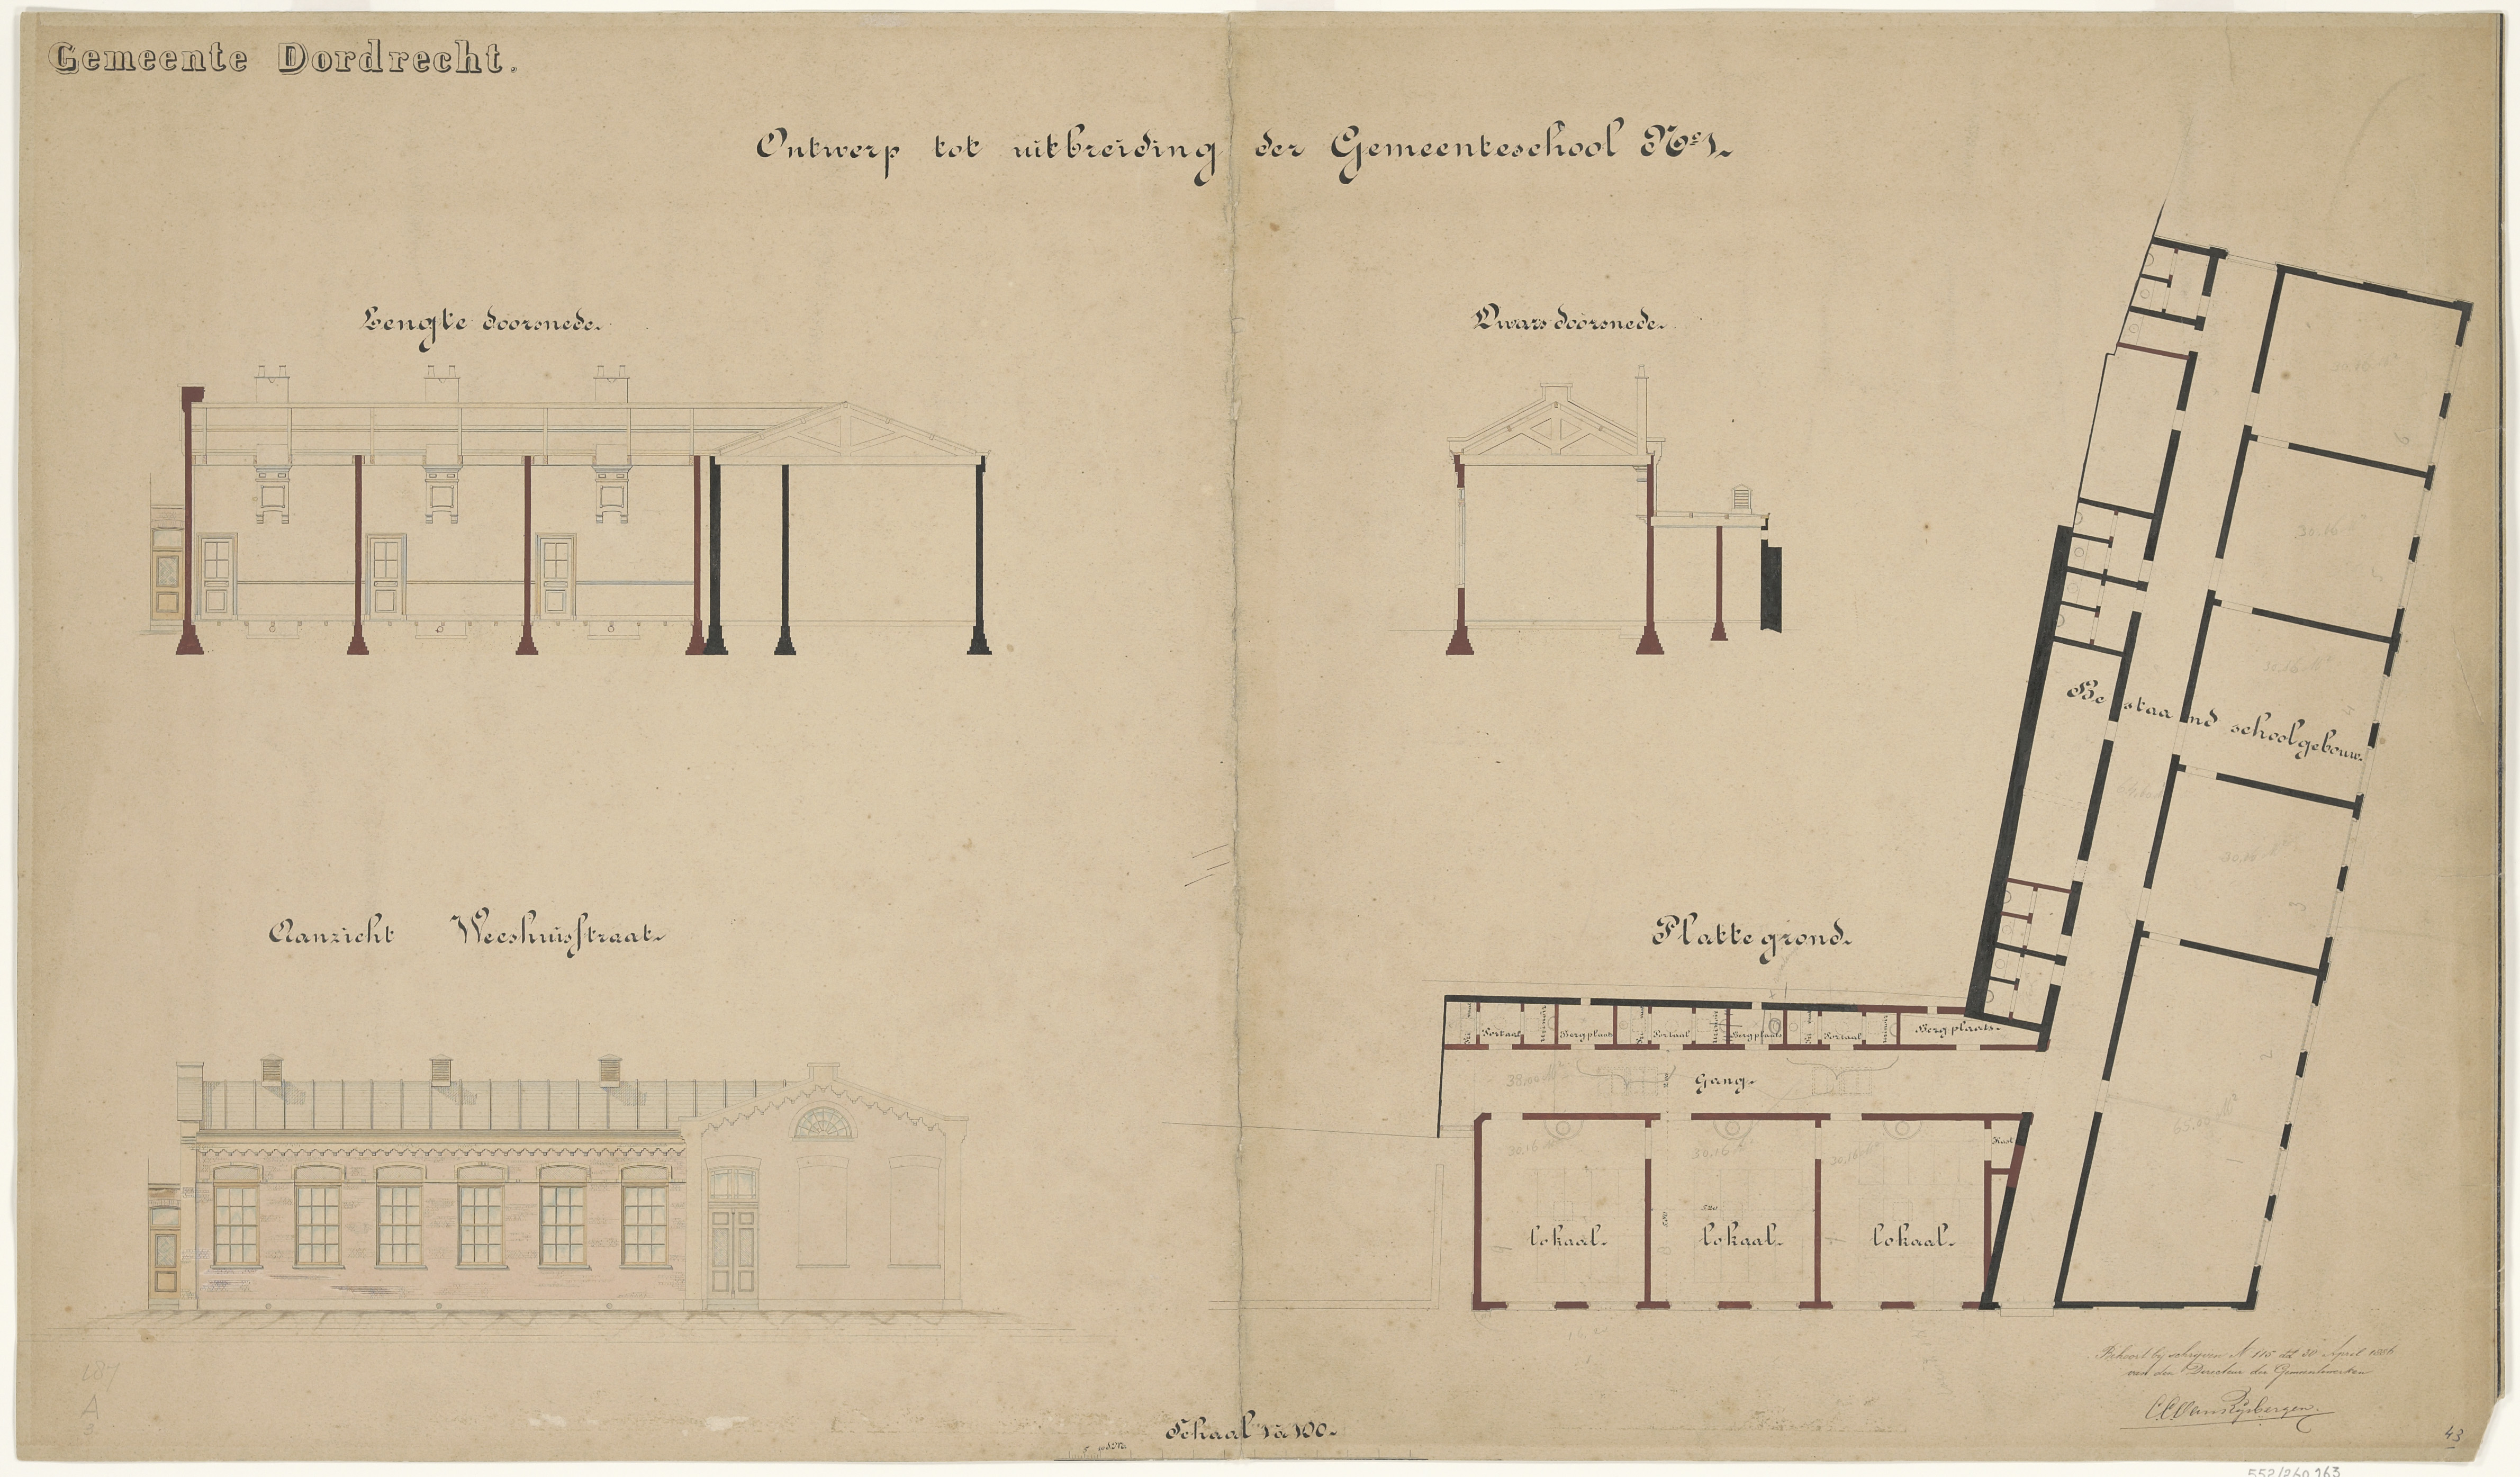 Gemeente Dordrecht.
Ontwerp tot uitbreiding der Gemeenteschool No 1.
Lengte doorsnede.
Dwars doorsnede.
30.16 M²
6
30.16
5
30.16 M²
Bestaand schoolgebouw.
4
30.16 M²
3
Aanzicht Weeshuisstraat.
Platte grond.
Portaal Bergplaats Portaal Bergplaats Portaal Bergplaats.
38.00 M²
Gang.
2
65.00 M²
1
Kast
30.16 M² 30.16 M² 30.16 M²
520
550
lokaal. lokaal. lokaal.
Behoort by schryven N 115 dd 30 April 1886
van den Directeur der Gemeentewerken
187
A
3
Schaal 1 à 100.
43
552/260 163